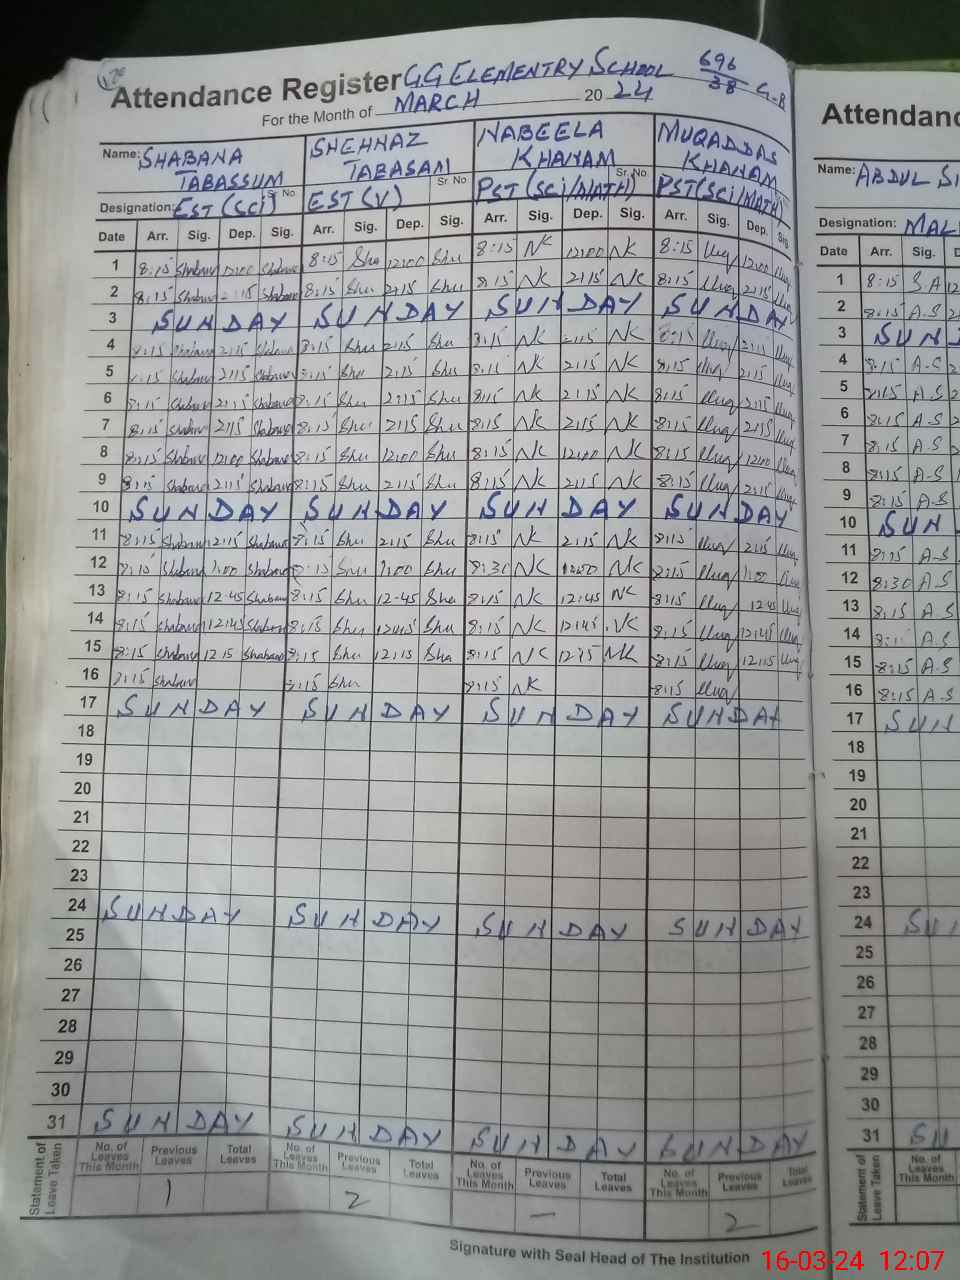 Attendance Register GG ELEMENTRY SCHOOL 696/38 G-B
For the Month of MARCH 2024
Name: SHABANA TABASSUM SHEHNAZ TABASAM NABEELA KHANAM MUQADDAS KHANAM
Sr. No Sr No Sr. No
Designation: EST (SCI) EST (V) PST (SCI/MATH) PST (SCI/MATH)
Date Arr. Sig. Dep. Sig. Arr. Sig. Dep. Sig. Arr. Sig. Dep. Sig. Arr. Sig. Dep. Sig
1 8:15 Shabana 12:00 Shabana 8:15 Sha 12:00 Shu 8:15 NK 12:00 NK 8:15 12:00
2 8:15 Shabana 2:15 Shabana 8:15 Shu 2:15 Shu 8:15 NK 2:15 NK 8:15 2:15
3 SUNDAY SUNDAY SUNDAY SUNDAY
4 8:15 Shabana 2:15 Shabana 8:15 Shu 2:15 Shu 8:15 NK 2:15 NK 8:15 2:15
5 8:15 Shabana 2:15 Shabana 8:15 Shu 2:15 Shu 8:15 NK 2:15 NK 8:15 2:15
6 8:15 Shabana 2:15 Shabana 8:15 Shu 2:15 Shu 8:15 NK 2:15 NK 8:15 2:15
7 8:15 Shabana 2:15 Shabana 8:15 Shu 2:15 Shu 8:15 NK 2:15 NK 8:15 2:15
8 8:15 Shabana 12:00 Shabana 8:15 Shu 12:00 Shu 8:15 NK 12:00 NK 8:15 12:00
9 8:15 Shabana 2:15 Shabana 8:15 Shu 2:15 Shu 8:15 NK 2:15 NK 8:15 2:15
10 SUNDAY SUNDAY SUNDAY SUNDAY
11 8:15 Shabana 2:15 Shabana 8:15 Shu 2:15 Shu 8:15 NK 2:15 NK 8:15 2:15
12 Shabana 1:00 Shabana 8:15 Shu 1:00 Shu 8:30 NK NK 8:15 1:00
13 8:15 Shabana 12-45 Shabana 8:15 Shu 12-45 Sha 8:15 NK 12:45 NK 8:15 12:45
14 8:15 Shabana 12:45 Shabana 8:15 Shu 12:45 Shu 8:15 NK 12:45 NK 8:15 12:45
15 8:15 Shabana 12 15 Shabana 8:15 Shu 12:15 Sha 8:15 NK 12:15 NK 8:15 12:15
16 8:15 Shabana 8:15 Shu 8:15 NK 8:15
17 SUNDAY SUNDAY SUNDAY SUNDAY
18
19
20
21
22
23
24 SUNDAY SUNDAY SUNDAY SUNDAY
25
26
27
28
29
30
31 SUNDAY SUNDAY SUNDAY SUNDAY
Statement of Leave Taken
No. of Leaves This Month Previous Leaves Total Leaves No. of Leaves This Month Previous Leaves Total Leaves No. of Leaves This Month Previous Leaves Total Leaves No. of Leaves This Month Previous Leaves Total Leaves
1 2 — 2
Signature with Seal Head of The Institution
Attendanc
Name: ABDUL S
Designation: MAL
Date Arr. Sig. D
1 8:15 S.A 12
2 8:15 A.S 2
3 SUN
4 8:15 A.S 2
5 8:15 A.S 2
6 8:15 A.S 2
7 8:15 A.S
8 8:15 A.S
9 8:15 A.S
10 SUN
11 8:15 A.S
12 8:30 A S
13 8:15 A.S
14 A.S
15 8:15 A.S
16 8:15 A.S
17 SUN
18
19
20
21
22
23
24 SU
25
26
27
28
29
30
31 SU
Statement of Leave Taken
No. of Leaves This Month
16-03-24 12:07